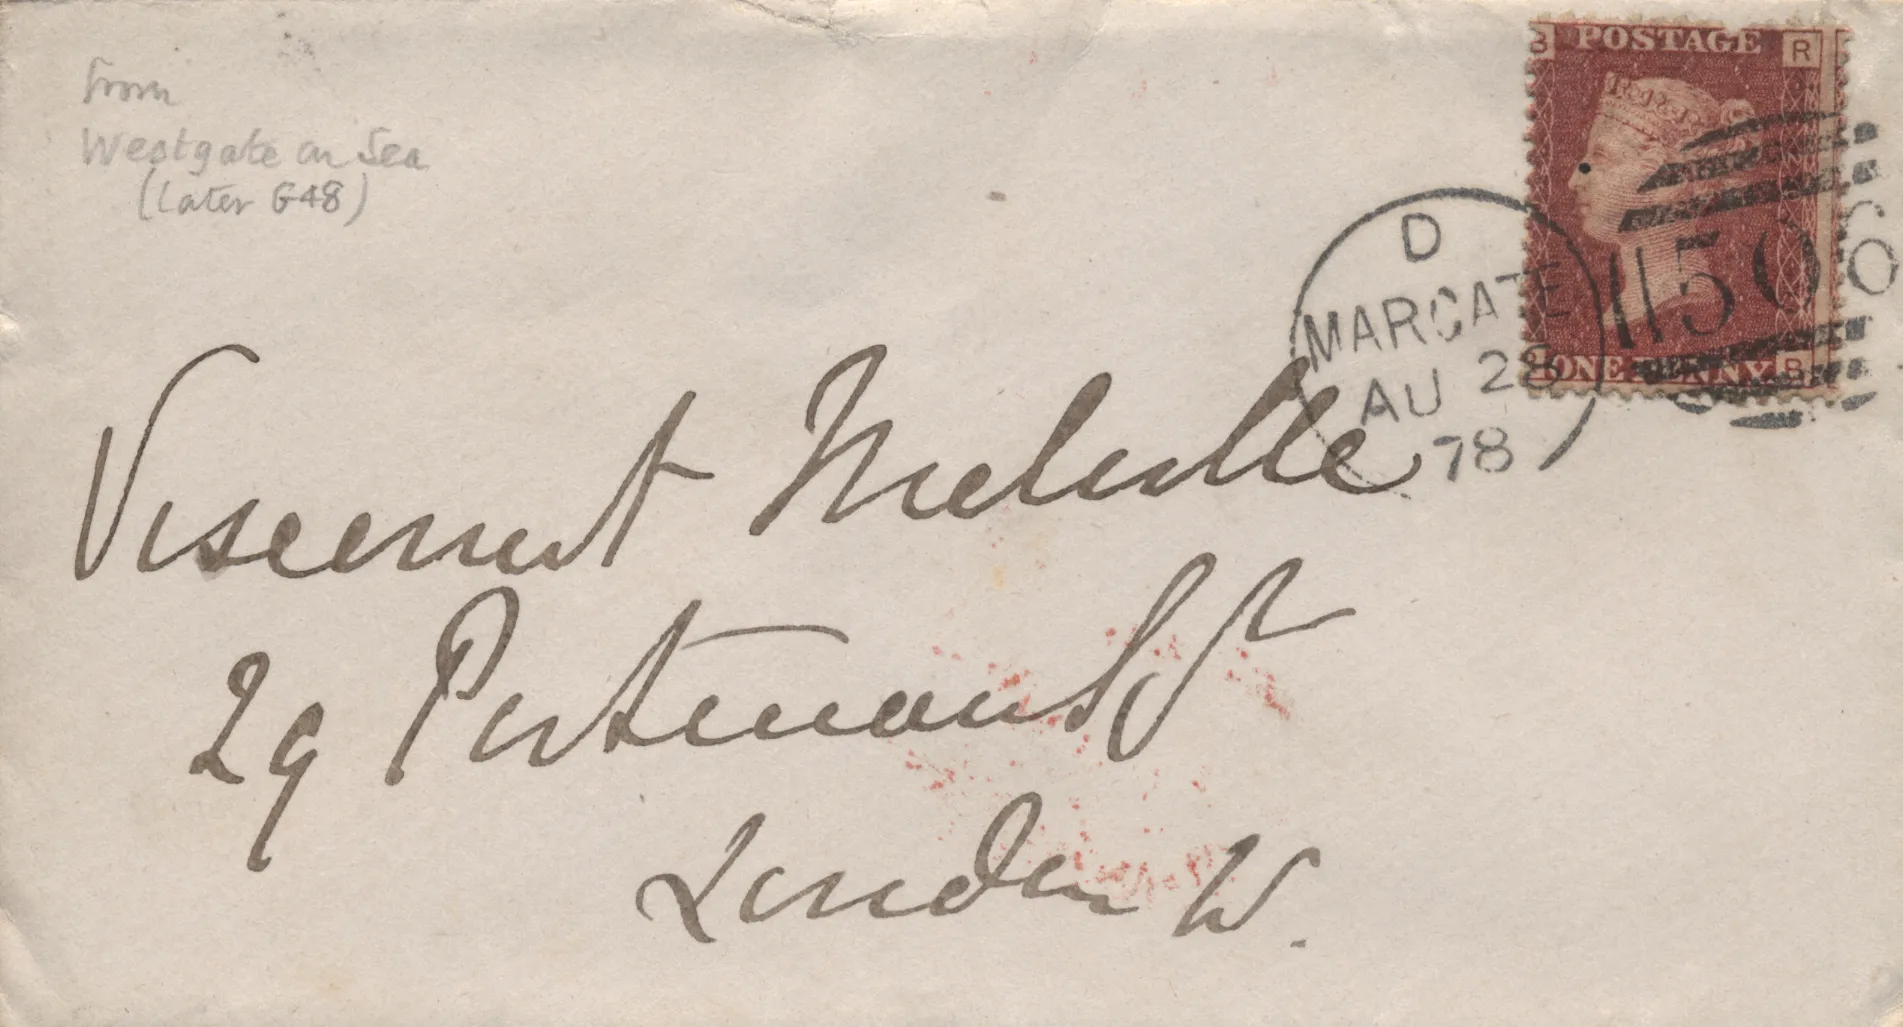 from
Westgate on Sea
(later G48)
B POSTAGE R
D
MARGATE
AU 28
78
506
ONE PENNY B
Viscount Melville
29 Portman St
London W.